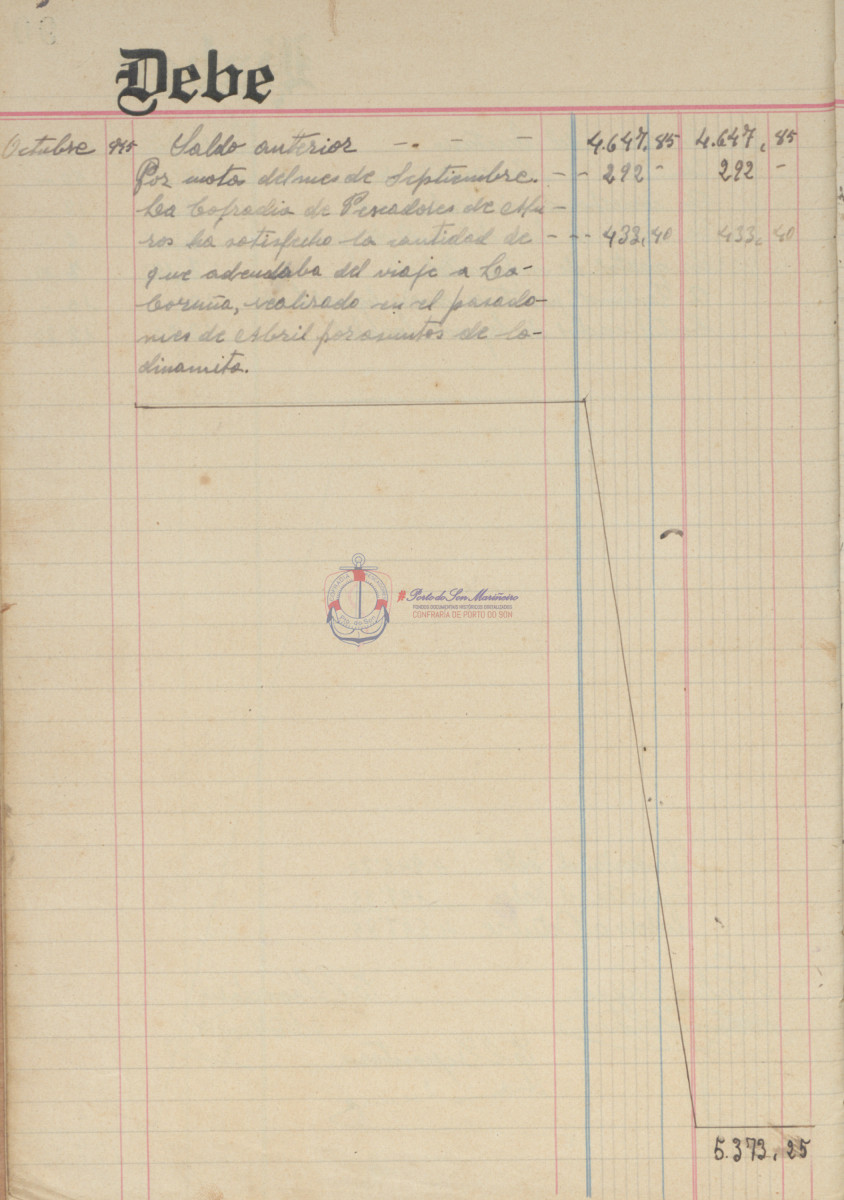 Debe
Octubre 945 Saldo anterior - . - - 4.647,85 4.647,85
Por motos del mes de Septiembre. - - 292 - 292 -
La Cofradia de Pescadores de Mu-
ros ha satisfecho la cantidad de - - - 433,40 433,40
que adeudaba del viaje a La-
Coruña, realizado en el pasado-
mes de Abril por asuntos de la-
dinamita.
#Porto do Son Mariñeiro
FONDOS DOCUMENTAIS HISTÓRICOS DIXITALIZADOS
CONFRARÍA DE PORTO DO SON
5.373,25